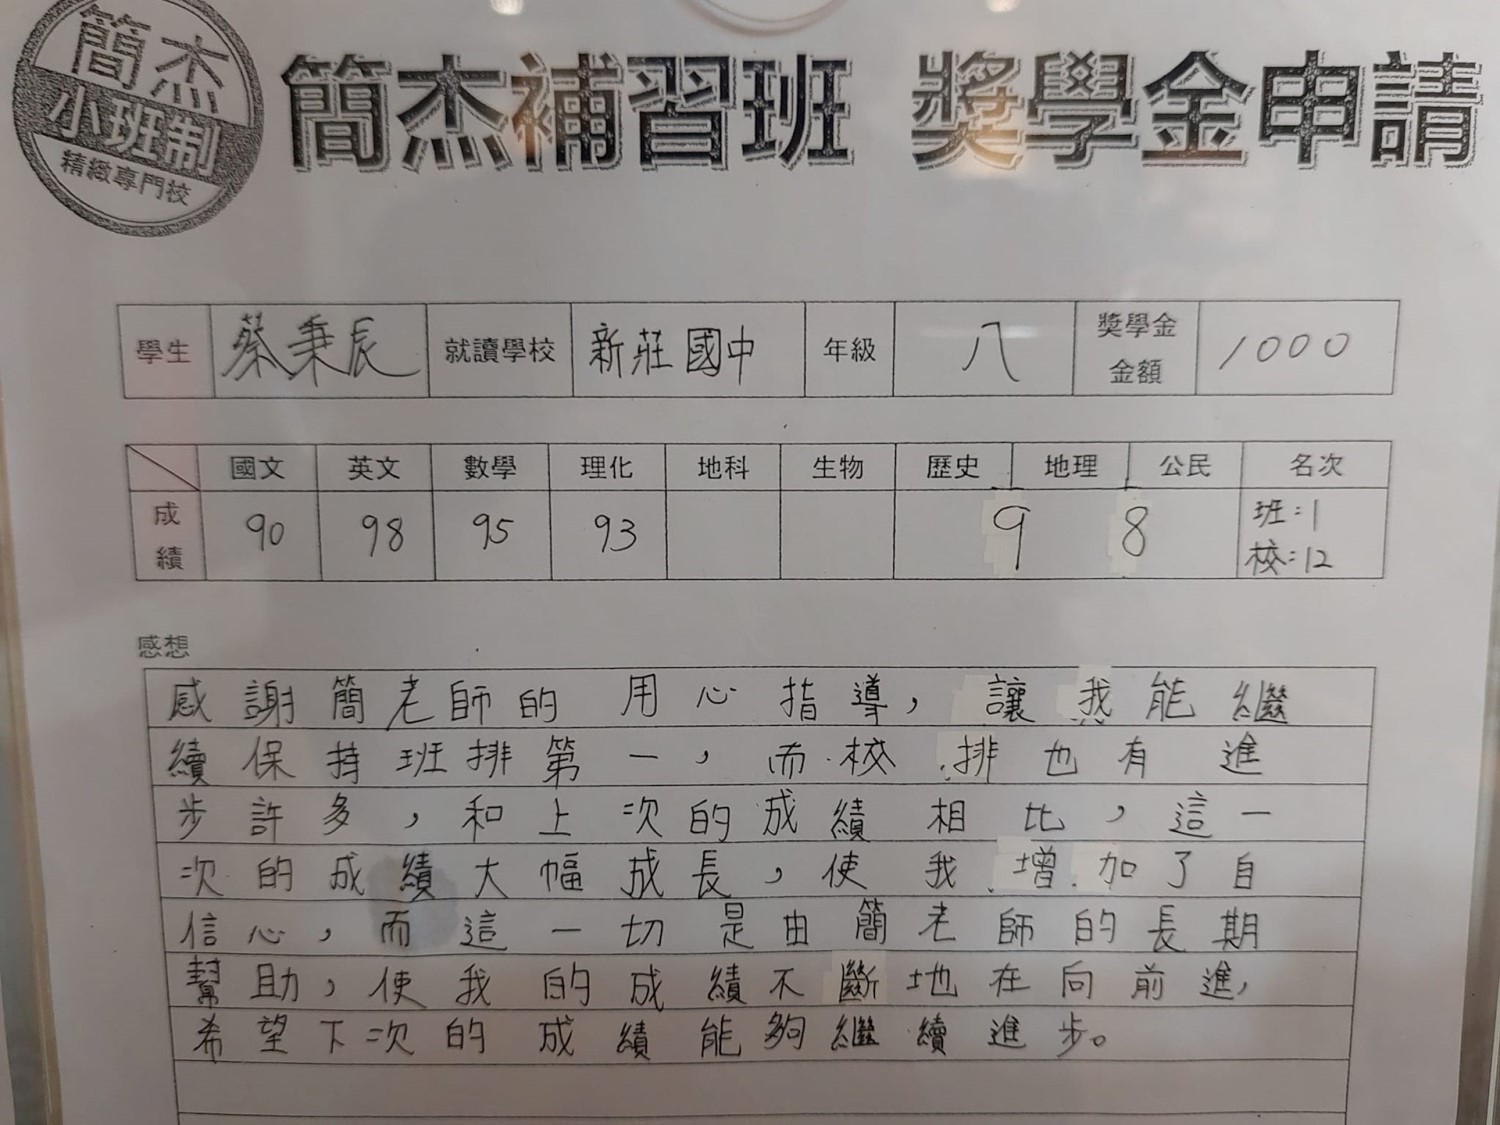 簡杰
小班制
精緻專門校
簡杰補習班 獎學金申請
學生 蔡秉辰 就讀學校 新莊國中 年級 八 獎學金金額 1000
國文 英文 數學 理化 地科 生物 歷史 地理 公民 名次
成績 90 98 95 93 98 班:1
校:12
感想
感謝簡老師的用心指導,讓我能繼
續保持班排第一,而校排也有進
步許多,和上次的成績相比,這一
次的成績大幅成長,使我增加了自
信心,而這一切是由簡老師的長期
幫助,使我的成績不斷地在向前進,
希望下次的成績能夠繼續進步。